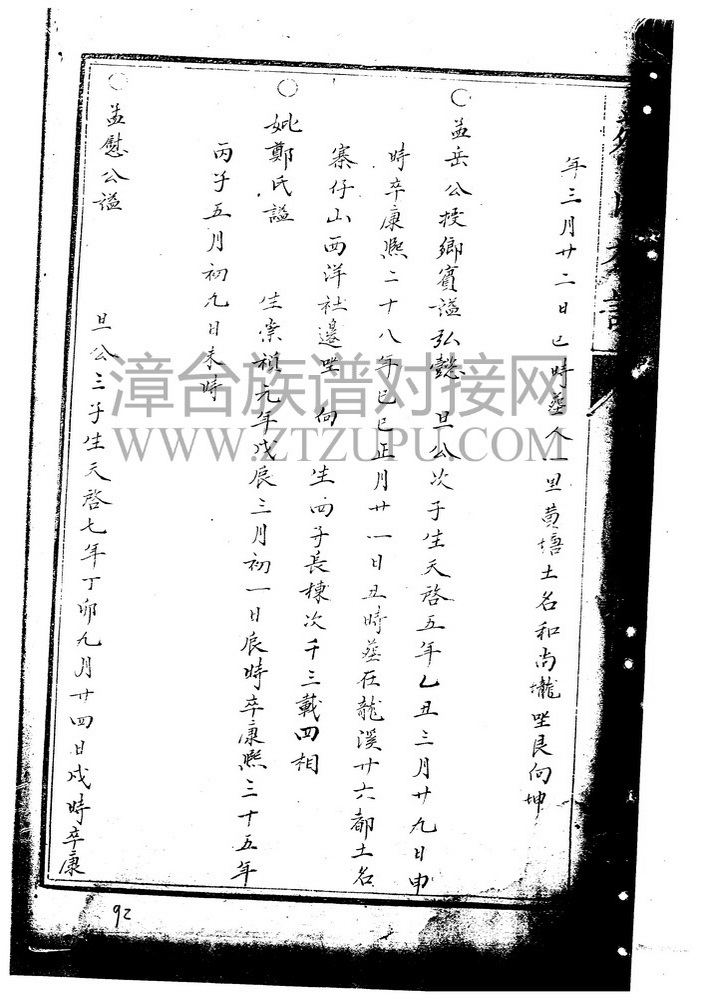 年三月廿二日巳時葬人一里黄塘土名和尚壠坐艮向坤
○ 孟岳公授鄉賓謚弘懿 旦公次子生天啓五年乙丑三月廿九日申
時卒康熙二十八年己巳正月廿一日丑時葬在龍溪廿六都土名
寨仔山西洋社邊坐 向 生四子長棟次千三載四相
○ 妣鄭氏謚 生崇禎元年戊辰三月初一日辰時卒康熙三十五年
丙子五月初九日未時
○ 孟慰公謚 旦公三子生天啓七年丁卯九月廿四日戌時卒康
漳台族谱对接网
WWW.ZTZUPU.COM
92